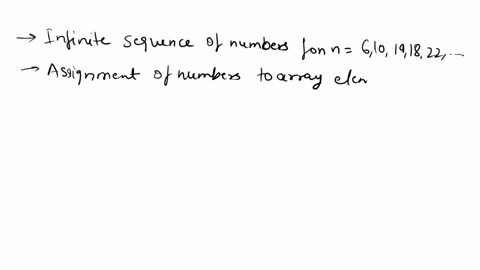 → Infinite sequence of numbers for n = 6,10, 19,18, 22, ....
→ Assignment of numbers to array elem